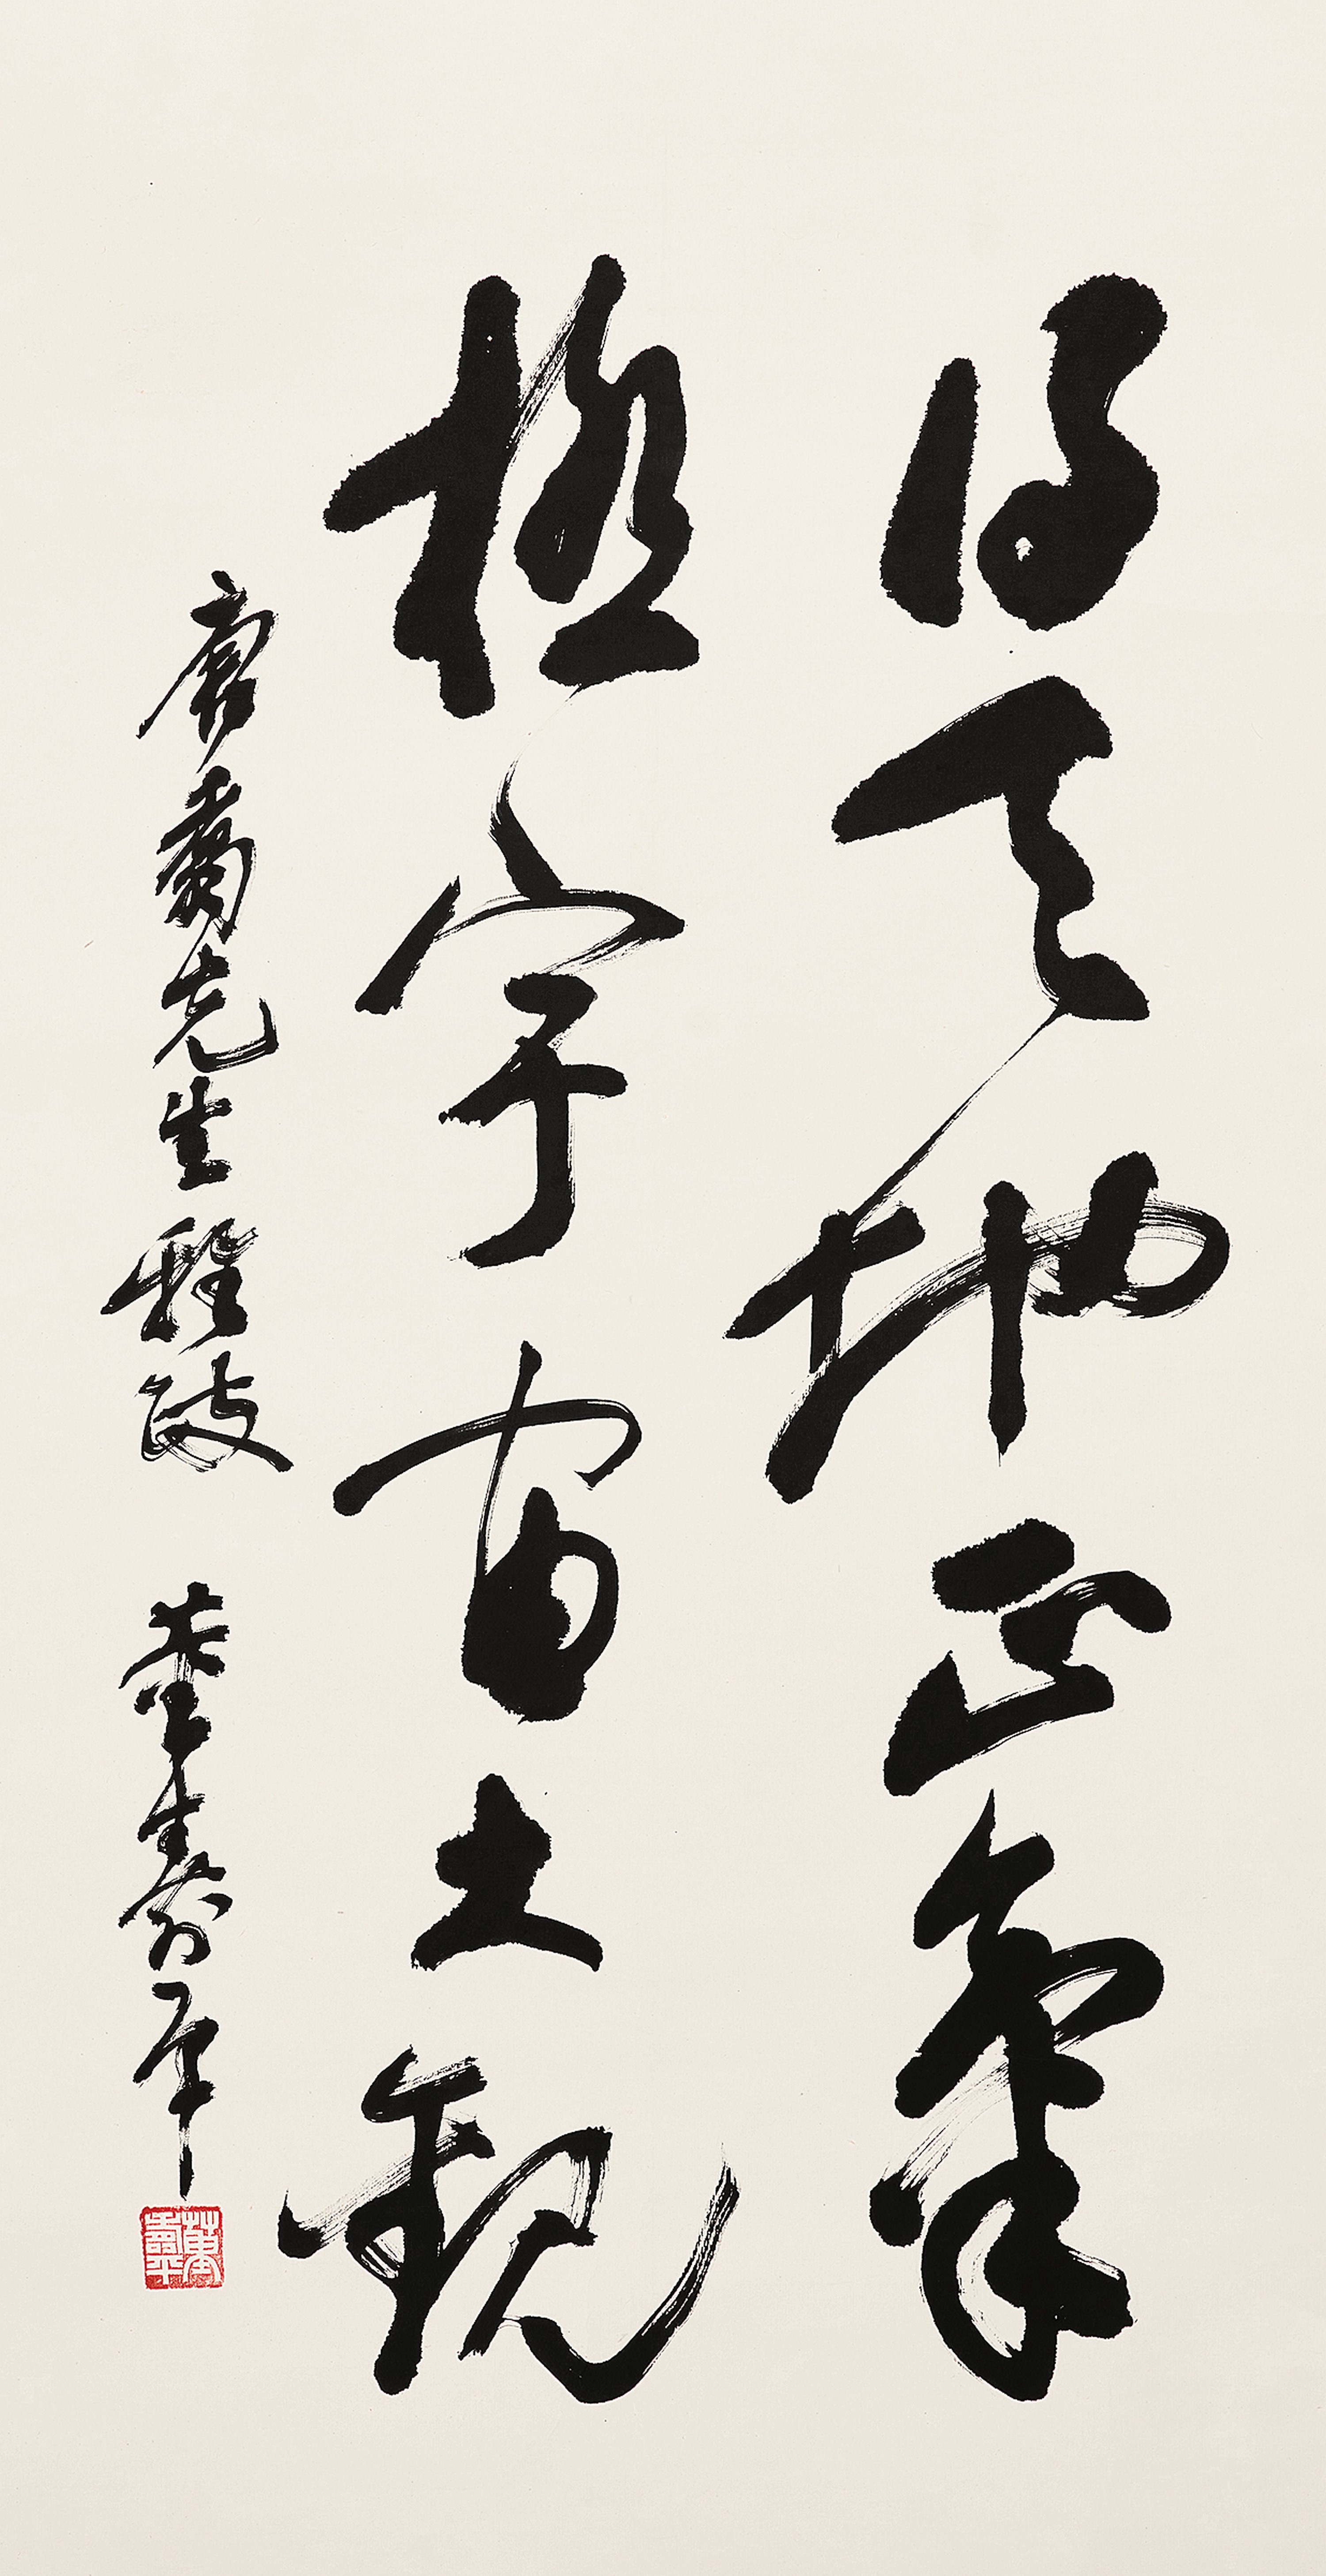 得天地正氣
極宇宙大觀
唐喬先生雅政 董壽平
董壽平